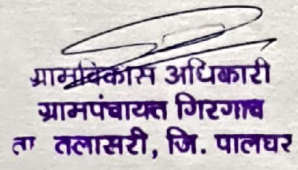 ग्रामविकास अधिकारी
ग्रामपंचायत गिरगाव
ता तलासरी, जि. पालघर